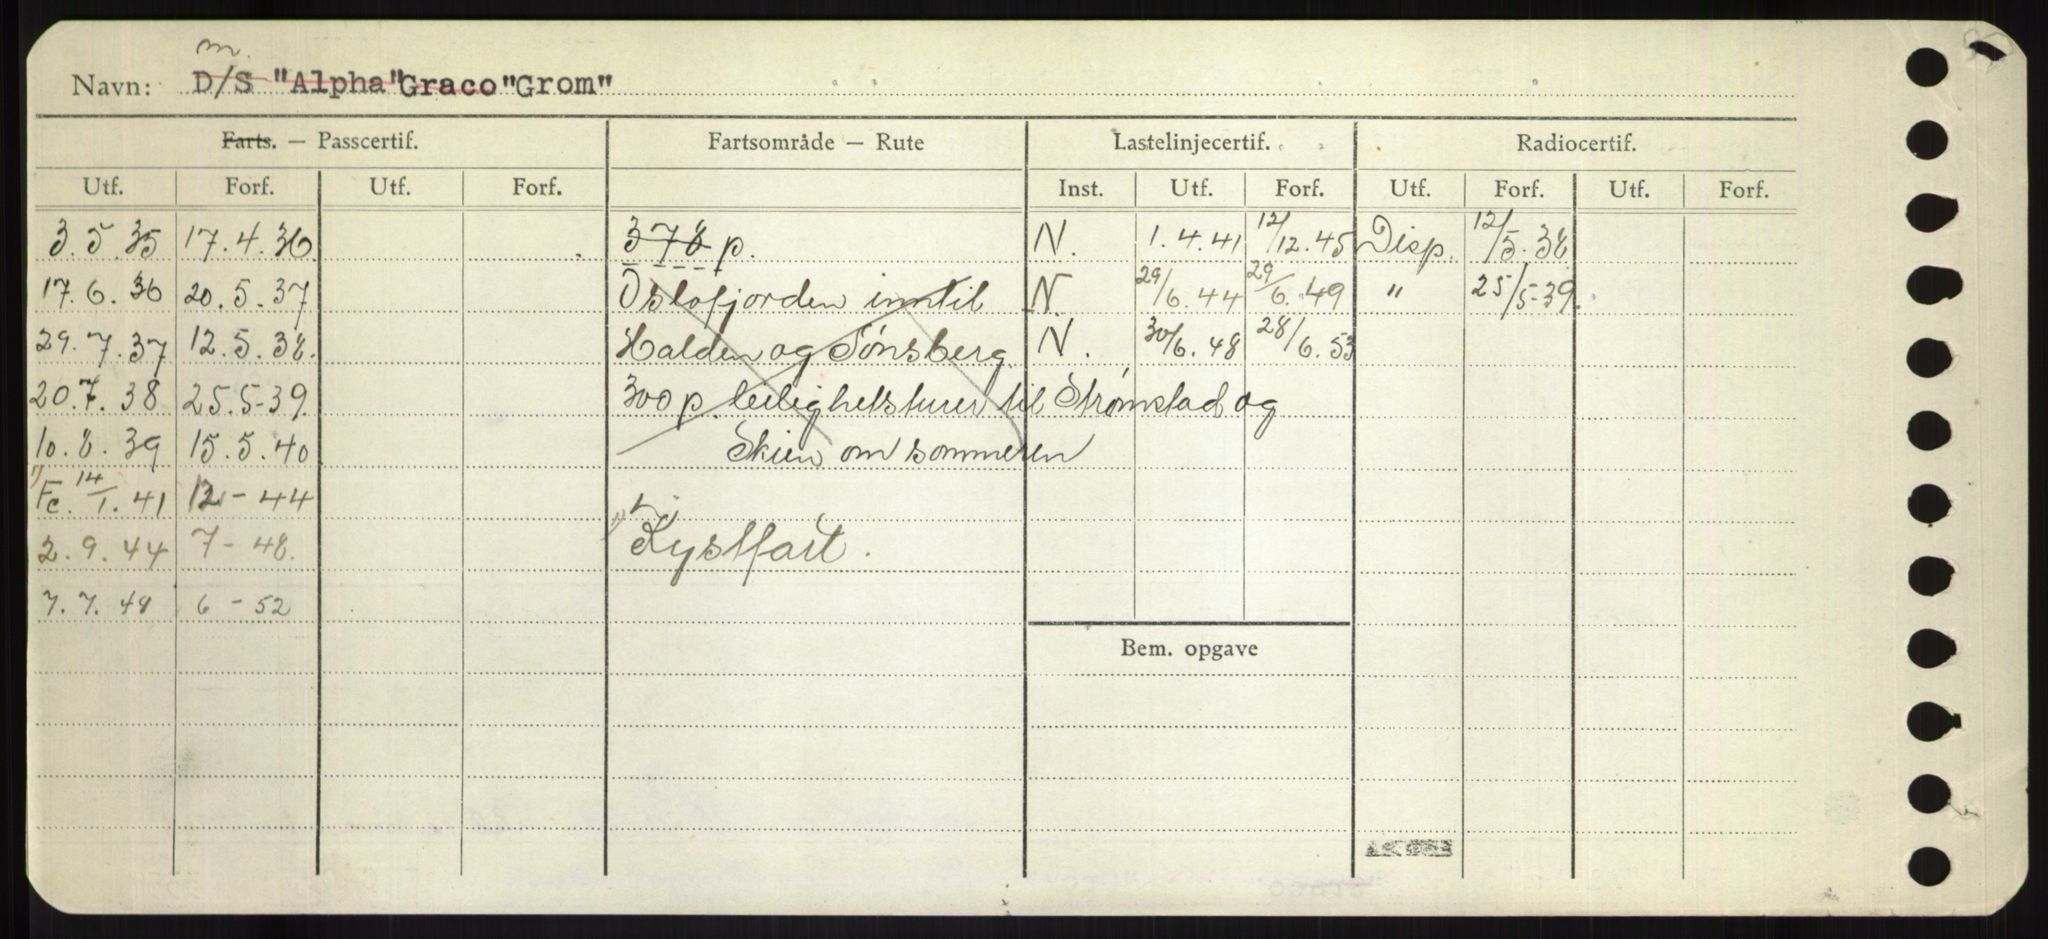 m.
Navn: D/S "Alpha" Graco "Grom"
Farts. — Passcertif. Fartsområde — Rute Lastelinjecertif. Radiocertif.
Utf. Forf. Utf. Forf. Inst. Utf. Forf. Utf. Forf. Utf. Forf.
3.5.35 17.4.36 378 p. N. 1.4.41 12/12.45 Disp. 12/5.38
17.6.36 20.5.37 Oslofjorden inntil N. 29/6.44 29/6.49 " 25/5-39.
29.7.37 12.5.38. Halden og Tønsberg N. 30/6.48 28/6.53
20.7.38 25.5-39 300 p. leilighetsturer til Strømstad og
10.8.39 15.5.40 Skien om sommeren
1) Fc. 14/1.41 12-44
2.9.44 7-48. 1) Kystfart.
7.7.48 6-52
Bem. opgave